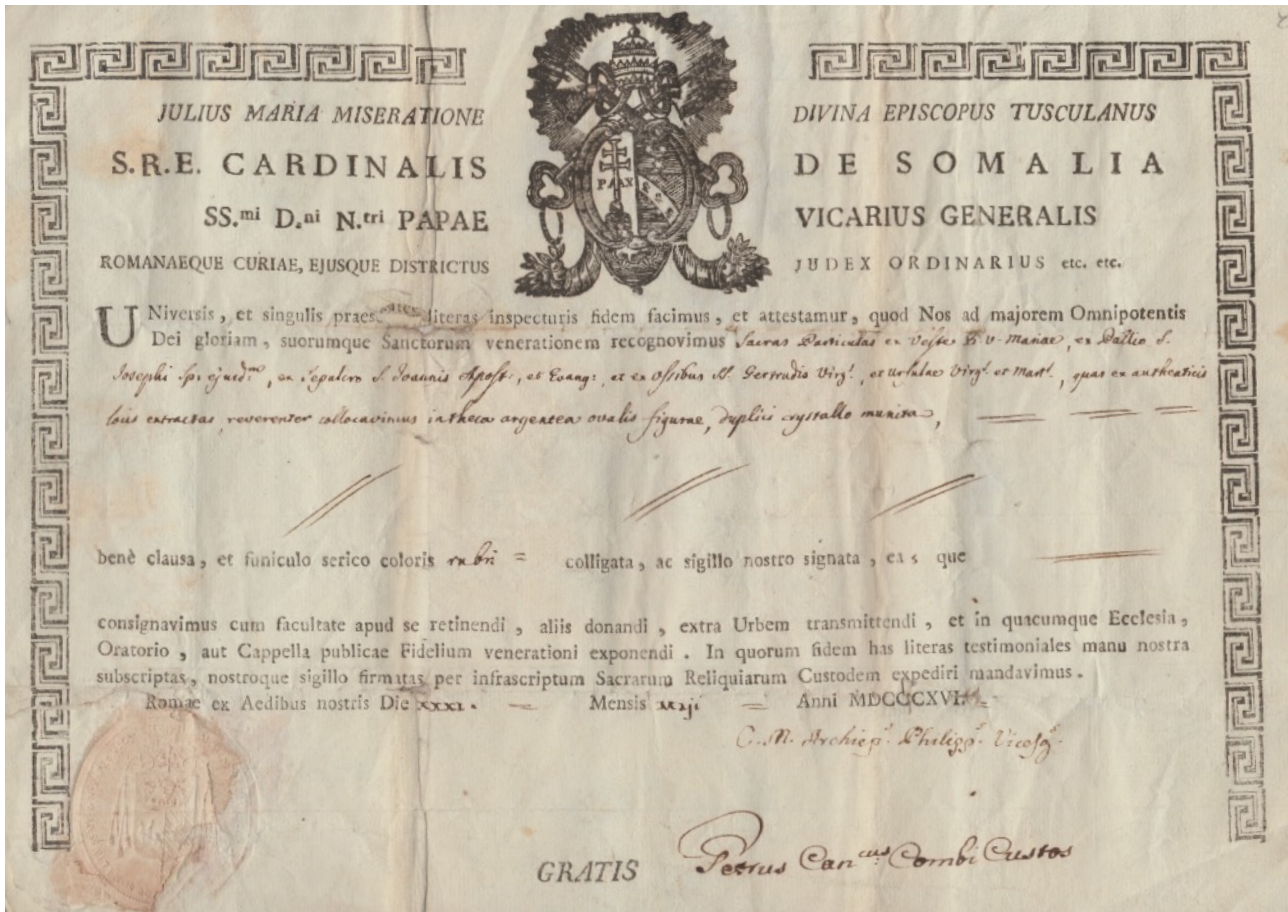 JULIUS MARIA MISERATIONE DIVINA EPISCOPUS TUSCULANUS
S.R.E. CARDINALIS DE SOMALIA
SS.mi D.ni N.tri PAPAE VICARIUS GENERALIS
ROMANAEQUE CURIAE, EJUSQUE DISTRICTUS JUDEX ORDINARIUS etc. etc.
PAX
UNiversis, et singulis praesentes literas inspecturis fidem facimus, et attestamur, quod Nos ad majorem Omnipotentis
Dei gloriam, suorumque Sanctorum venerationem recognovimus Sacras Particulas ex Veste B. V. Mariae, ex Pallio S.
Josephi Sp. ejusd.m, ex Sepulcro S. Joannis Apost., et Evang: et ex Ossibus SS. Gertrudis Virg., et Ursulae Virg. et Mart., quas ex authenticis
locis extractas, reverenter collocavimus in theca argentea ovalis figurae, duplici crystallo munita,
benè clausa, et funiculo serico coloris rubri = colligata, ac sigillo nostro signata, eas que
consignavimus cum facultate apud se retinendi, aliis donandi, extra Urbem transmittendi, et in quacumque Ecclesia,
Oratorio, aut Cappella publicae Fidelium venerationi exponendi. In quorum fidem has literas testimoniales manu nostra
subscriptas, nostroque sigillo firmatas per infrascriptum Sacrarum Reliquiarum Custodem expediri mandavimus.
Romae ex Aedibus nostris Die xxxi. Mensis Maji Anni MDCCCXVI
C. M. Archiep. Philipp. Vicesg.
GRATIS Petrus Can.cus Combi Custos